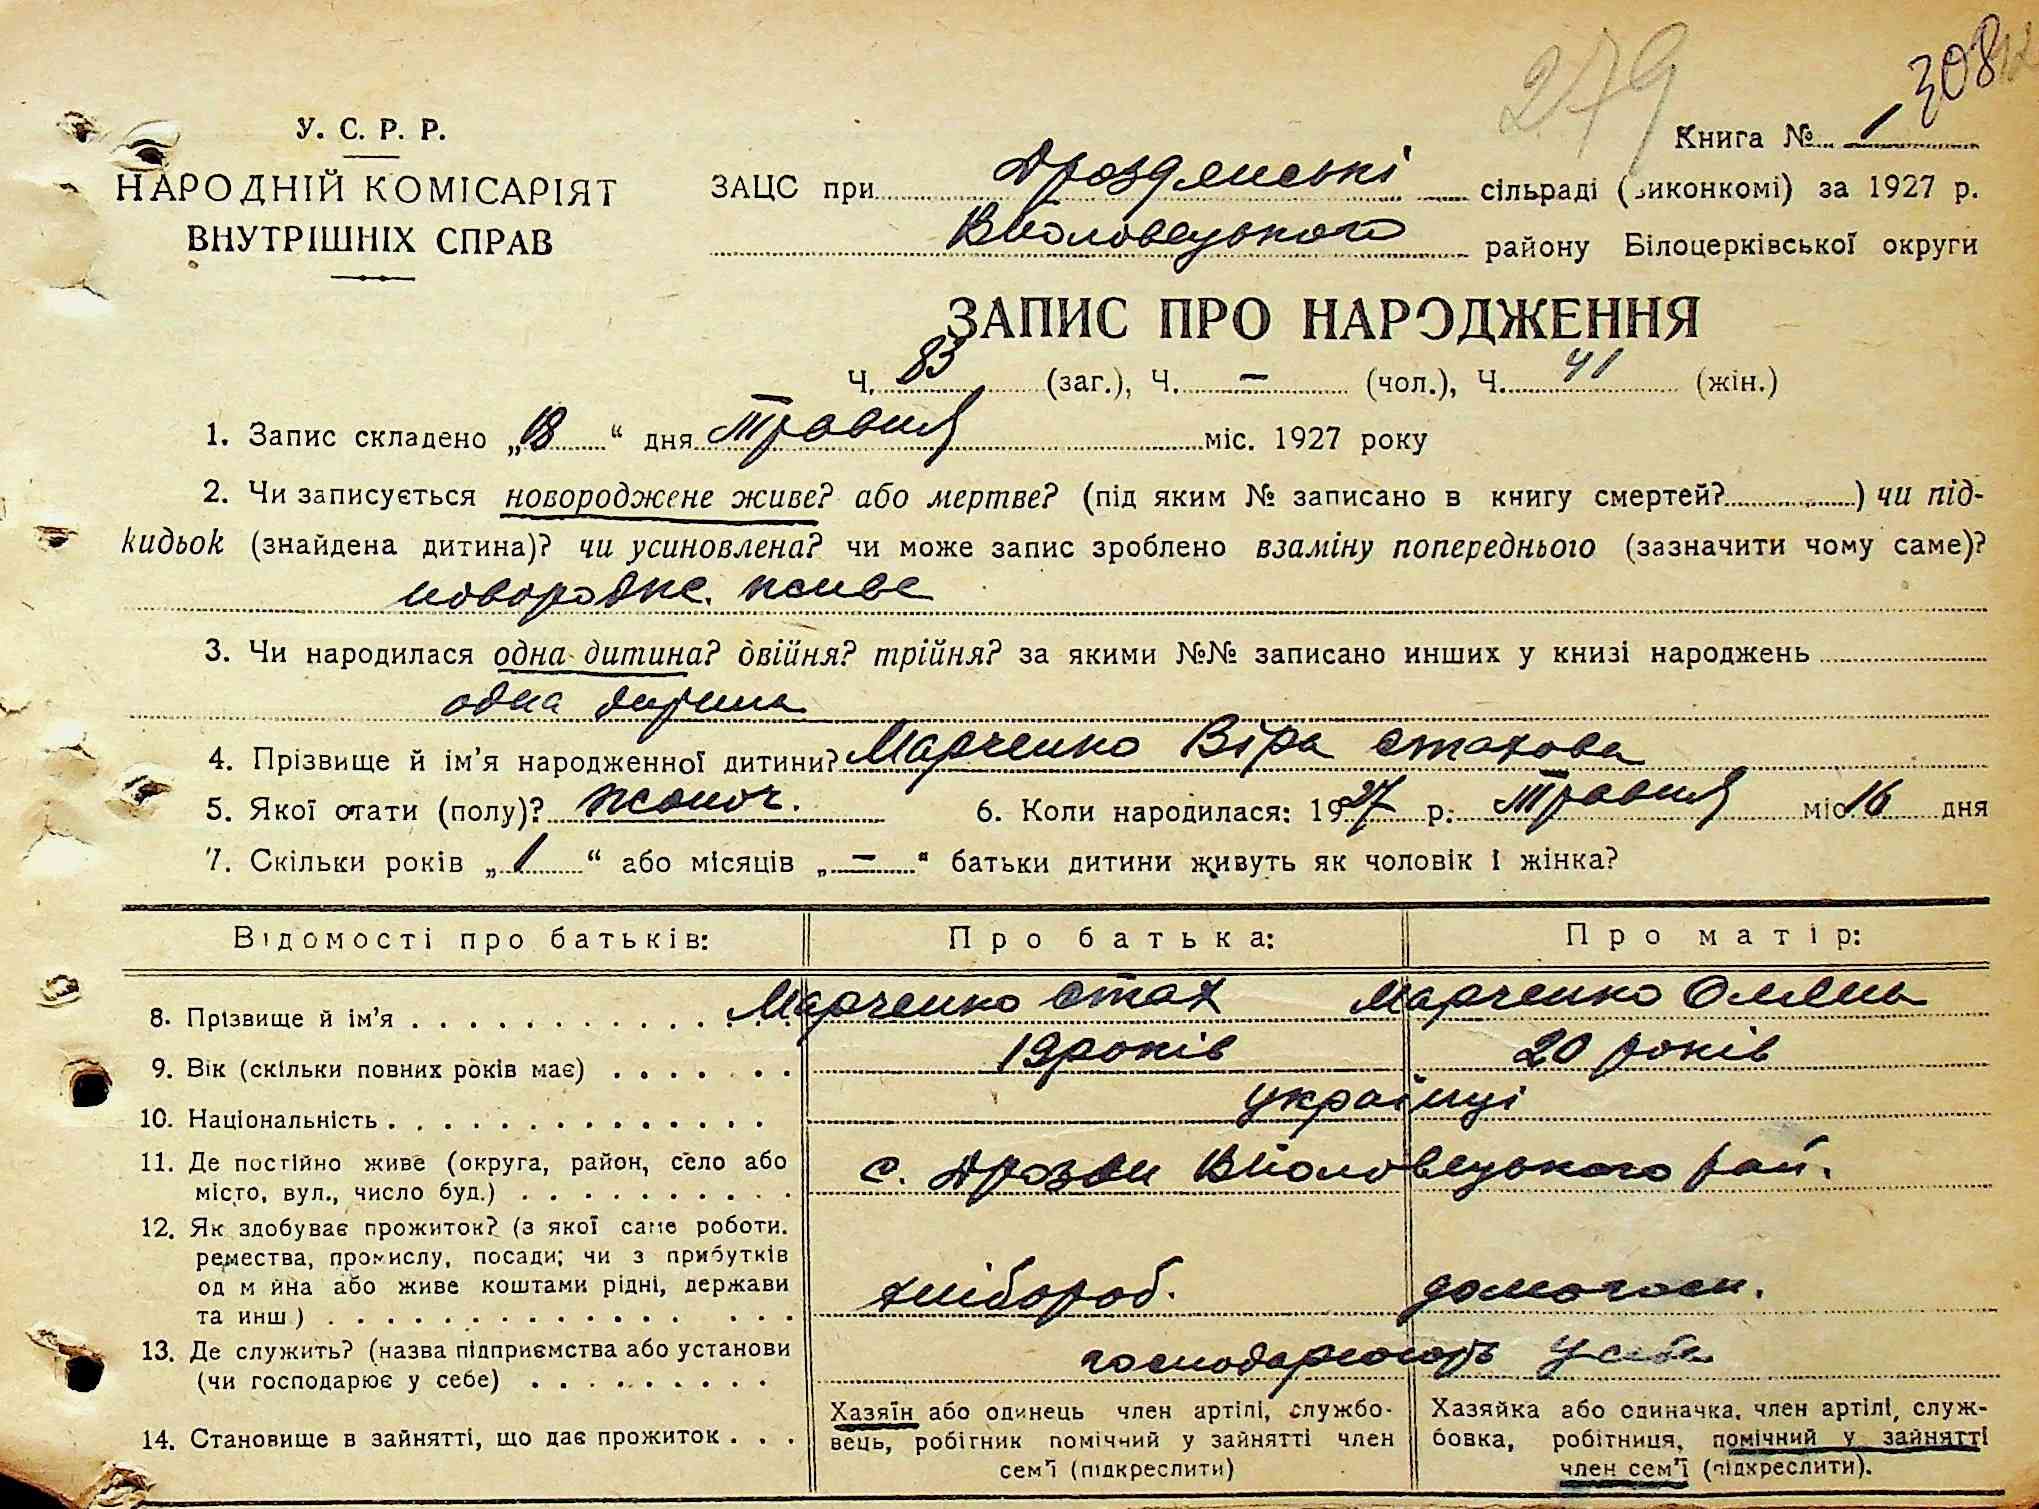 279
308
У. С. Р. Р.
НАРОДНІЙ КОМІСАРІЯТ
ВНУТРІШНІХ СПРАВ
Книга № 1
ЗАЦС при Дрозденські сільраді (виконкомі) за 1927 р.
району Білоцерківської округи
ЗАПИС ПРО НАРОДЖЕННЯ
Ч. 83 (заг.), Ч. – (чол.), Ч. 41 (жін.)
1. Запис складено „18“ дня Травня міс. 1927 року
2. Чи записується новороджене живе? або мертве? (під яким № записано в книгу смертей? ) чи під-
кидьок (знайдена дитина)? чи усиновлена? чи може запис зроблено взаміну попереднього (зазначити чому саме)?
новородже. живе
3. Чи народилася одна дитина? двійня? трійня? за якими №№ записано инших у книзі народжень
одна дитина
4. Прізвище й ім’я народженної дитини? Марченко Віра Стахова
5. Якої стати (полу)? жоноч. 6. Коли народилася: 1927 р. Травня міс. 16 дня
7. Скільки років „1“ або місяців „–“ батьки дитини живуть як чоловік і жінка?
Відомості про батьків: Про батька: Про матір:
8. Прізвище й ім’я Марченко Стах Марченко Оляна
9. Вік (скільки повних років має) 19 років 20 років
10. Національність українці
11. Де постійно живе (округа, район, село або
місто, вул., число буд.) с. Дрозди рай.
12. Як здобуває прожиток? (з якої саме роботи.
ремества, промислу, посади; чи з прибутків
од м йна або живе коштами рідні, держави
та инш.) хлібороб. домогосп.
13. Де служить? (назва підприємства або установи
(чи господарює у себе) господарюють у себе
14. Становище в зайнятті, що дає прожиток
Хазяїн або одинець член артілі, службо-
вець, робітник помічний у зайнятті член
сем’ї (підкреслити)
Хазяйка або одиначка, член артілі, служ-
бовка, робітниця, помічний у зайнятті
член сем’ї (підкреслити).